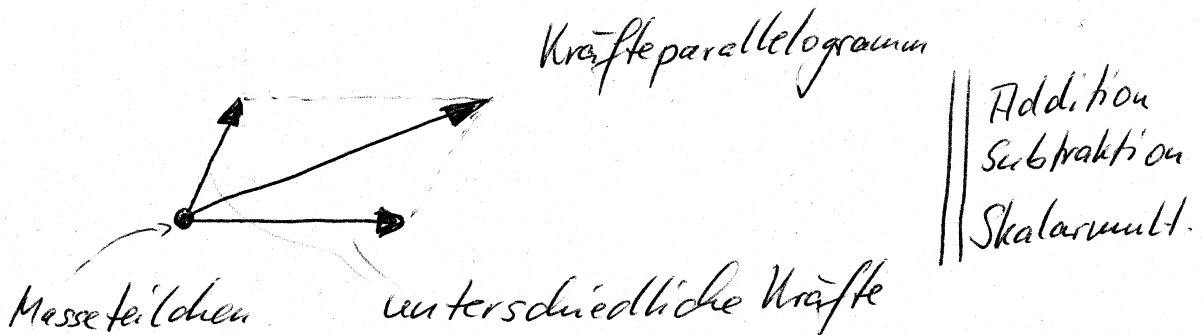 Kräfteparallelogramm
Addition
Subtraktion
Skalarmult.
Masseteilchen
unterschiedliche Kräfte